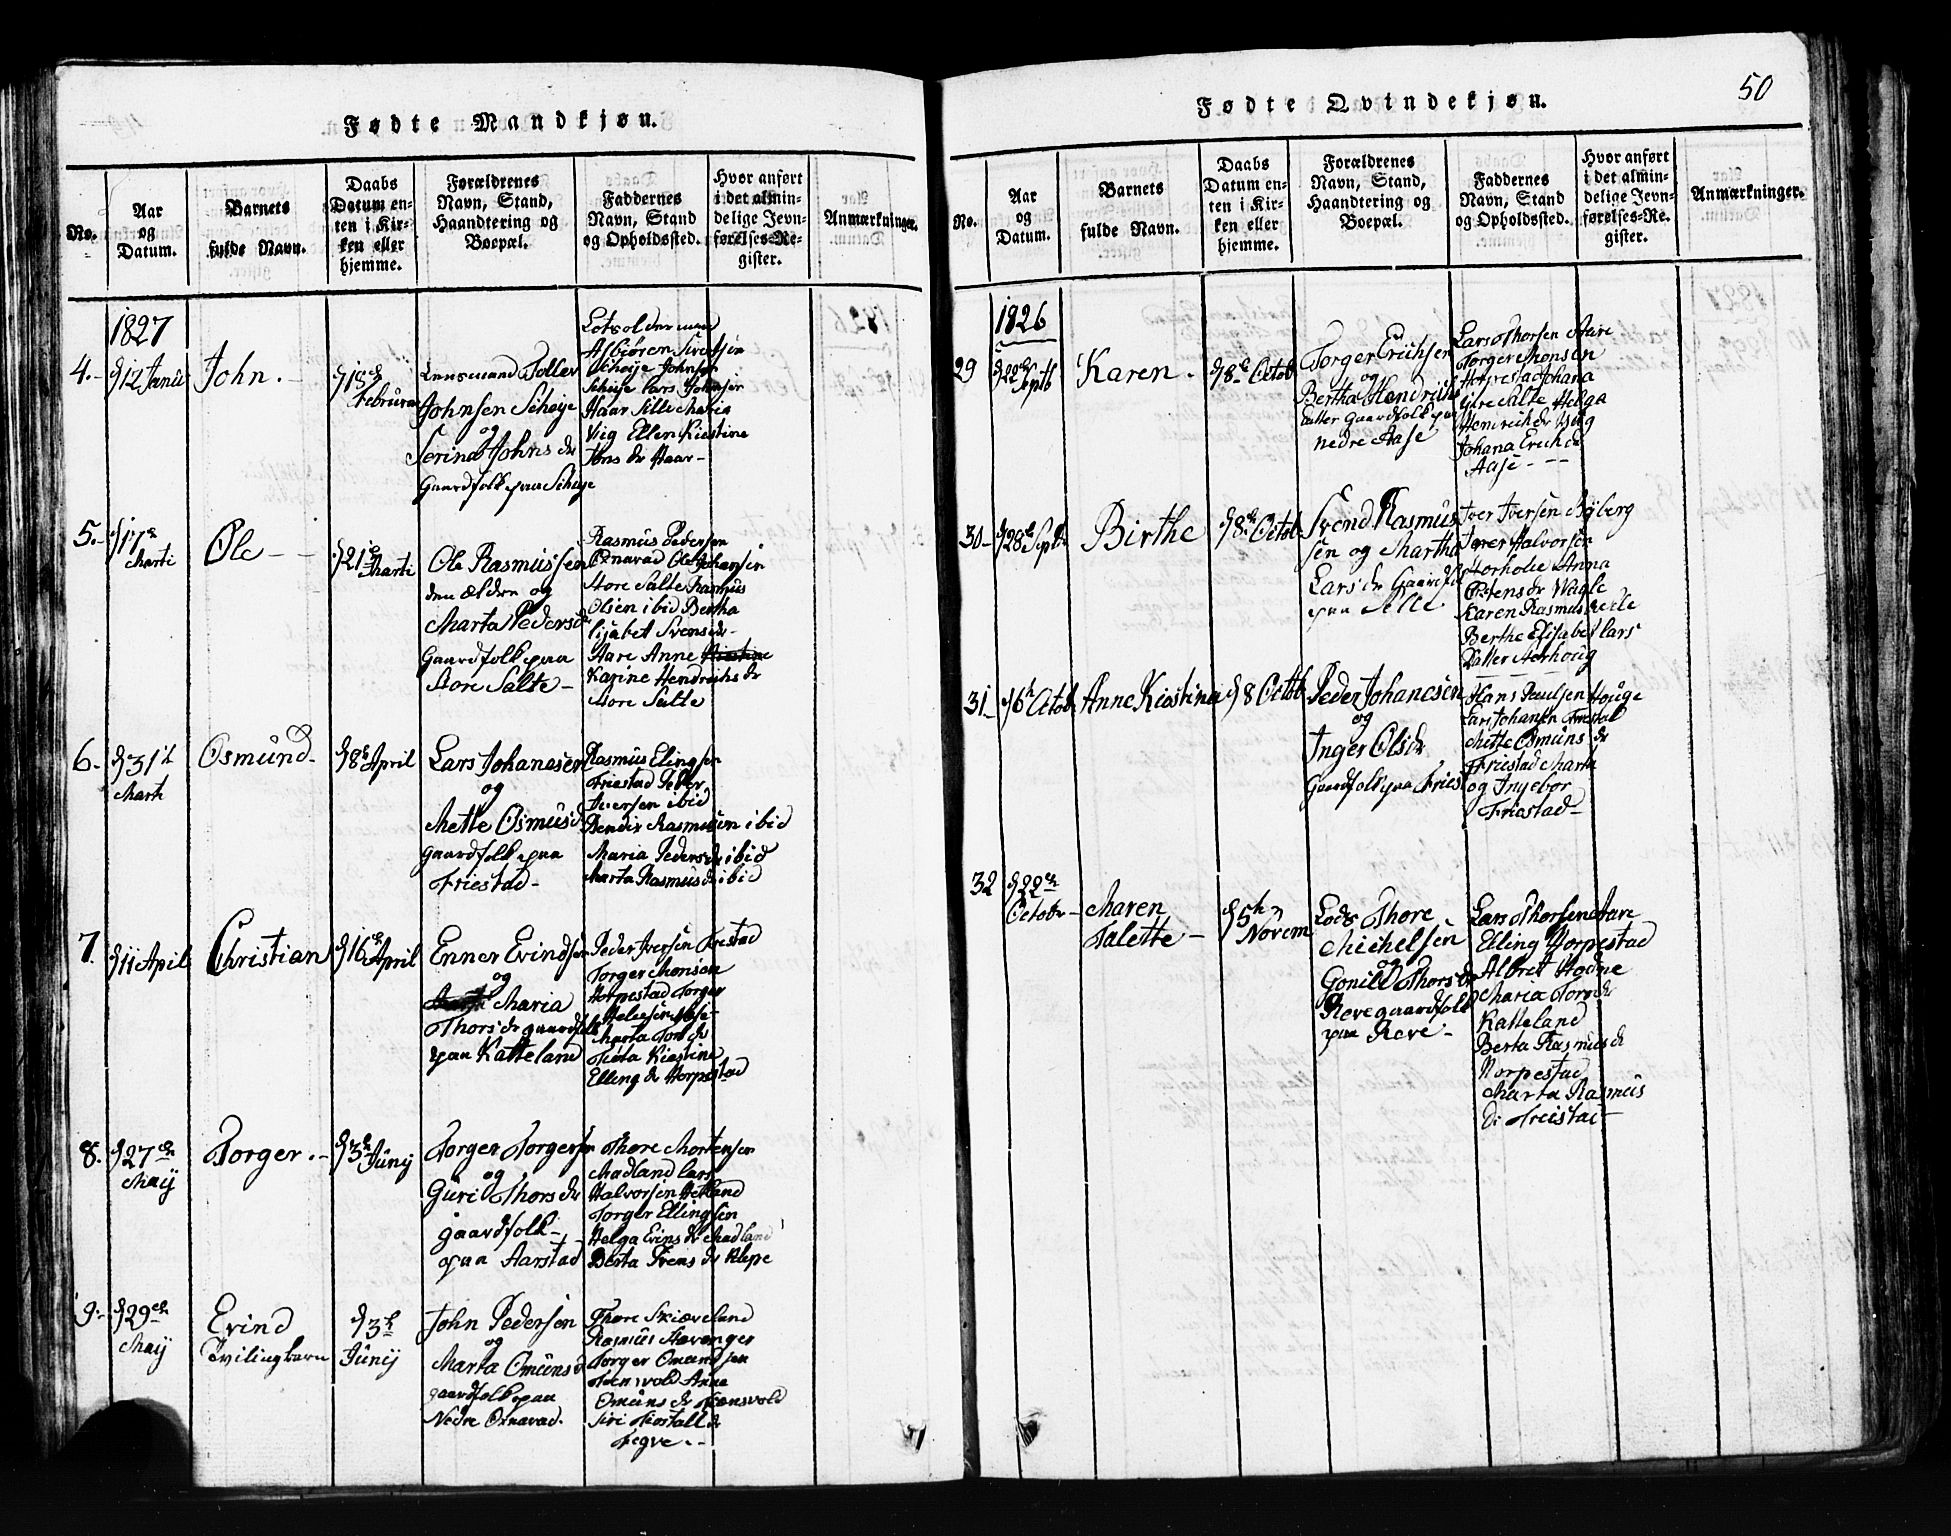 Fødte Mandkjøn.
No.
Aar
og
Datum.
Barnets
fulde Navn.
Daabs
Datum en-
ten i Kir-
ken eller
hjemme.
Forældrenes
Navn, Stand,
Haandtering og
Boepæl.
Faddernes
Navn, Stand
og Opholdssted.
Hvor anført
i det almin-
delige Jevn-
førelses-Re-
gister.
Anmærkninger.
1827
4.-
12 Janu
John.-
18
Februar
Lensmand Toller
Johnsen Scheije
og
Serina Johnsdr
Gaardfolk paa Scheije
Lotsolderman
Asbiøren Sivertsen
Scheije Johnsen
Scheije Lars Johnsen
Haar Sille Maria
Viig Ellen Kiestine
dr Haar-
5.-
17
Marti
Ole - -
21 Marti
Ole Rasmussen
den ældre og
Marta Pedersdr
Gaardfolk paa
Store Salte -
Rasmus Pedersen
Ornavad Ole Johansen
Store Salte Rasmus
Olsen ibid Bertha
Lisabet Svensdr-
Aare Anne
Karine Hendrichsdr
Store Salte
6.-
31
Marti
Osmund-
8 April
Lars Johanesen
og
Mette Osmusdr
gaardfolk paa
Friestad-
Rasmus Elingsen
Friestad Peder
Iversen ibid
Bendix Rasmusen ibid
Maria Pedersdr ibid
Marta Rasmusdr ibid
7.
11 April
Christian
16 April
Enner Evindsen
og
Maria
Thorsdr gaardfolk
paa Katteland
Peder Iversen Friestad
Torger Monsen
Horpestad Torger
Aase-
Marta Torsdr
Tiøta Kiestine
Elling dr Horpestad
8.
27
Maij
Torger.-
3 Junij
Torger Torgersen
og
Guri Thorsdr
gaardfolk-
paa Aarstad
Thore Mortensen
Madland Lars
Halvorsen Hetland
Torger Ellingsen
Helga Evinsdr Madland
Berta Svensdr Klepe
9.-
29
Maij
Evind
Tvilingbarn
3
Junij
John Pedersen
og
Marta Omunsdr
gaardfolk paa
Nedre Ornavad.
Thore Skiæveland
Rasmus Stavanger
Torger Omundsen
Tiensvold Anna
Omuns dr Tiensvold
Siri Tiostallsdr
Tegve.-
50
Fødte Qvindekjøn.
No.
Aar
og
Datum.
Barnets
fulde Navn.
Daabs
Datum en-
ten i Kir-
ken eller
hjemme.
Forældrenes
Navn, Stand,
Haandtering og
Boepæl.
Faddernes
Navn, Stand
og Opholdssted.
Hvor anført
i det almin-
delige Jevn-
førelses-Re-
gister.
Anmærkninger.
1826
29
22
Septb
Karen.
8 Octob
Torger Erichsen
og
Bertha Hendrichs
datter Gaardfolk paa
nedre Aase
Lars Thorsen Aare
Torger Monsen
Horpestad Johana
Lille Salte Helga
Henrichdr Viig
Johana Erichdr
Aase- - -
30-
28 Septb
Birthe
8 Octob
Svend Rasmus
sen og Martha
Larsdr Gaardfol
paa Selle
Iver Iversen Byberg
Iver Halvorsen
Storholie Anna
Ostensdr Wagle
Karen Rasmus Selle
Berthe Elisabet Lars
datter Aarhoug
31-
6 Octob
Anne Kiestine
8 Octob
Peder Johanesen
og
Inger Olsdr
Gaardfolk paa Friest
Hans Paulsen Houge
Lars Johansn Friestad
Mette Osmuns dr
Friestad Marta
og Ingebor
Friestad-
32
22
Octobr-
Maren
Talette-
5
Novem
Lods Thore
Michelsen
og
Gonild Thorsdr
Reve gaardfolk
paa Reve-
Lars Thorsen Aare
Elling Horpestad
Albret Hodne
Maria Torsdr
Katteland
Berta Rasmusdr
Horpestad
Marta Rasmus
dr Friestad-